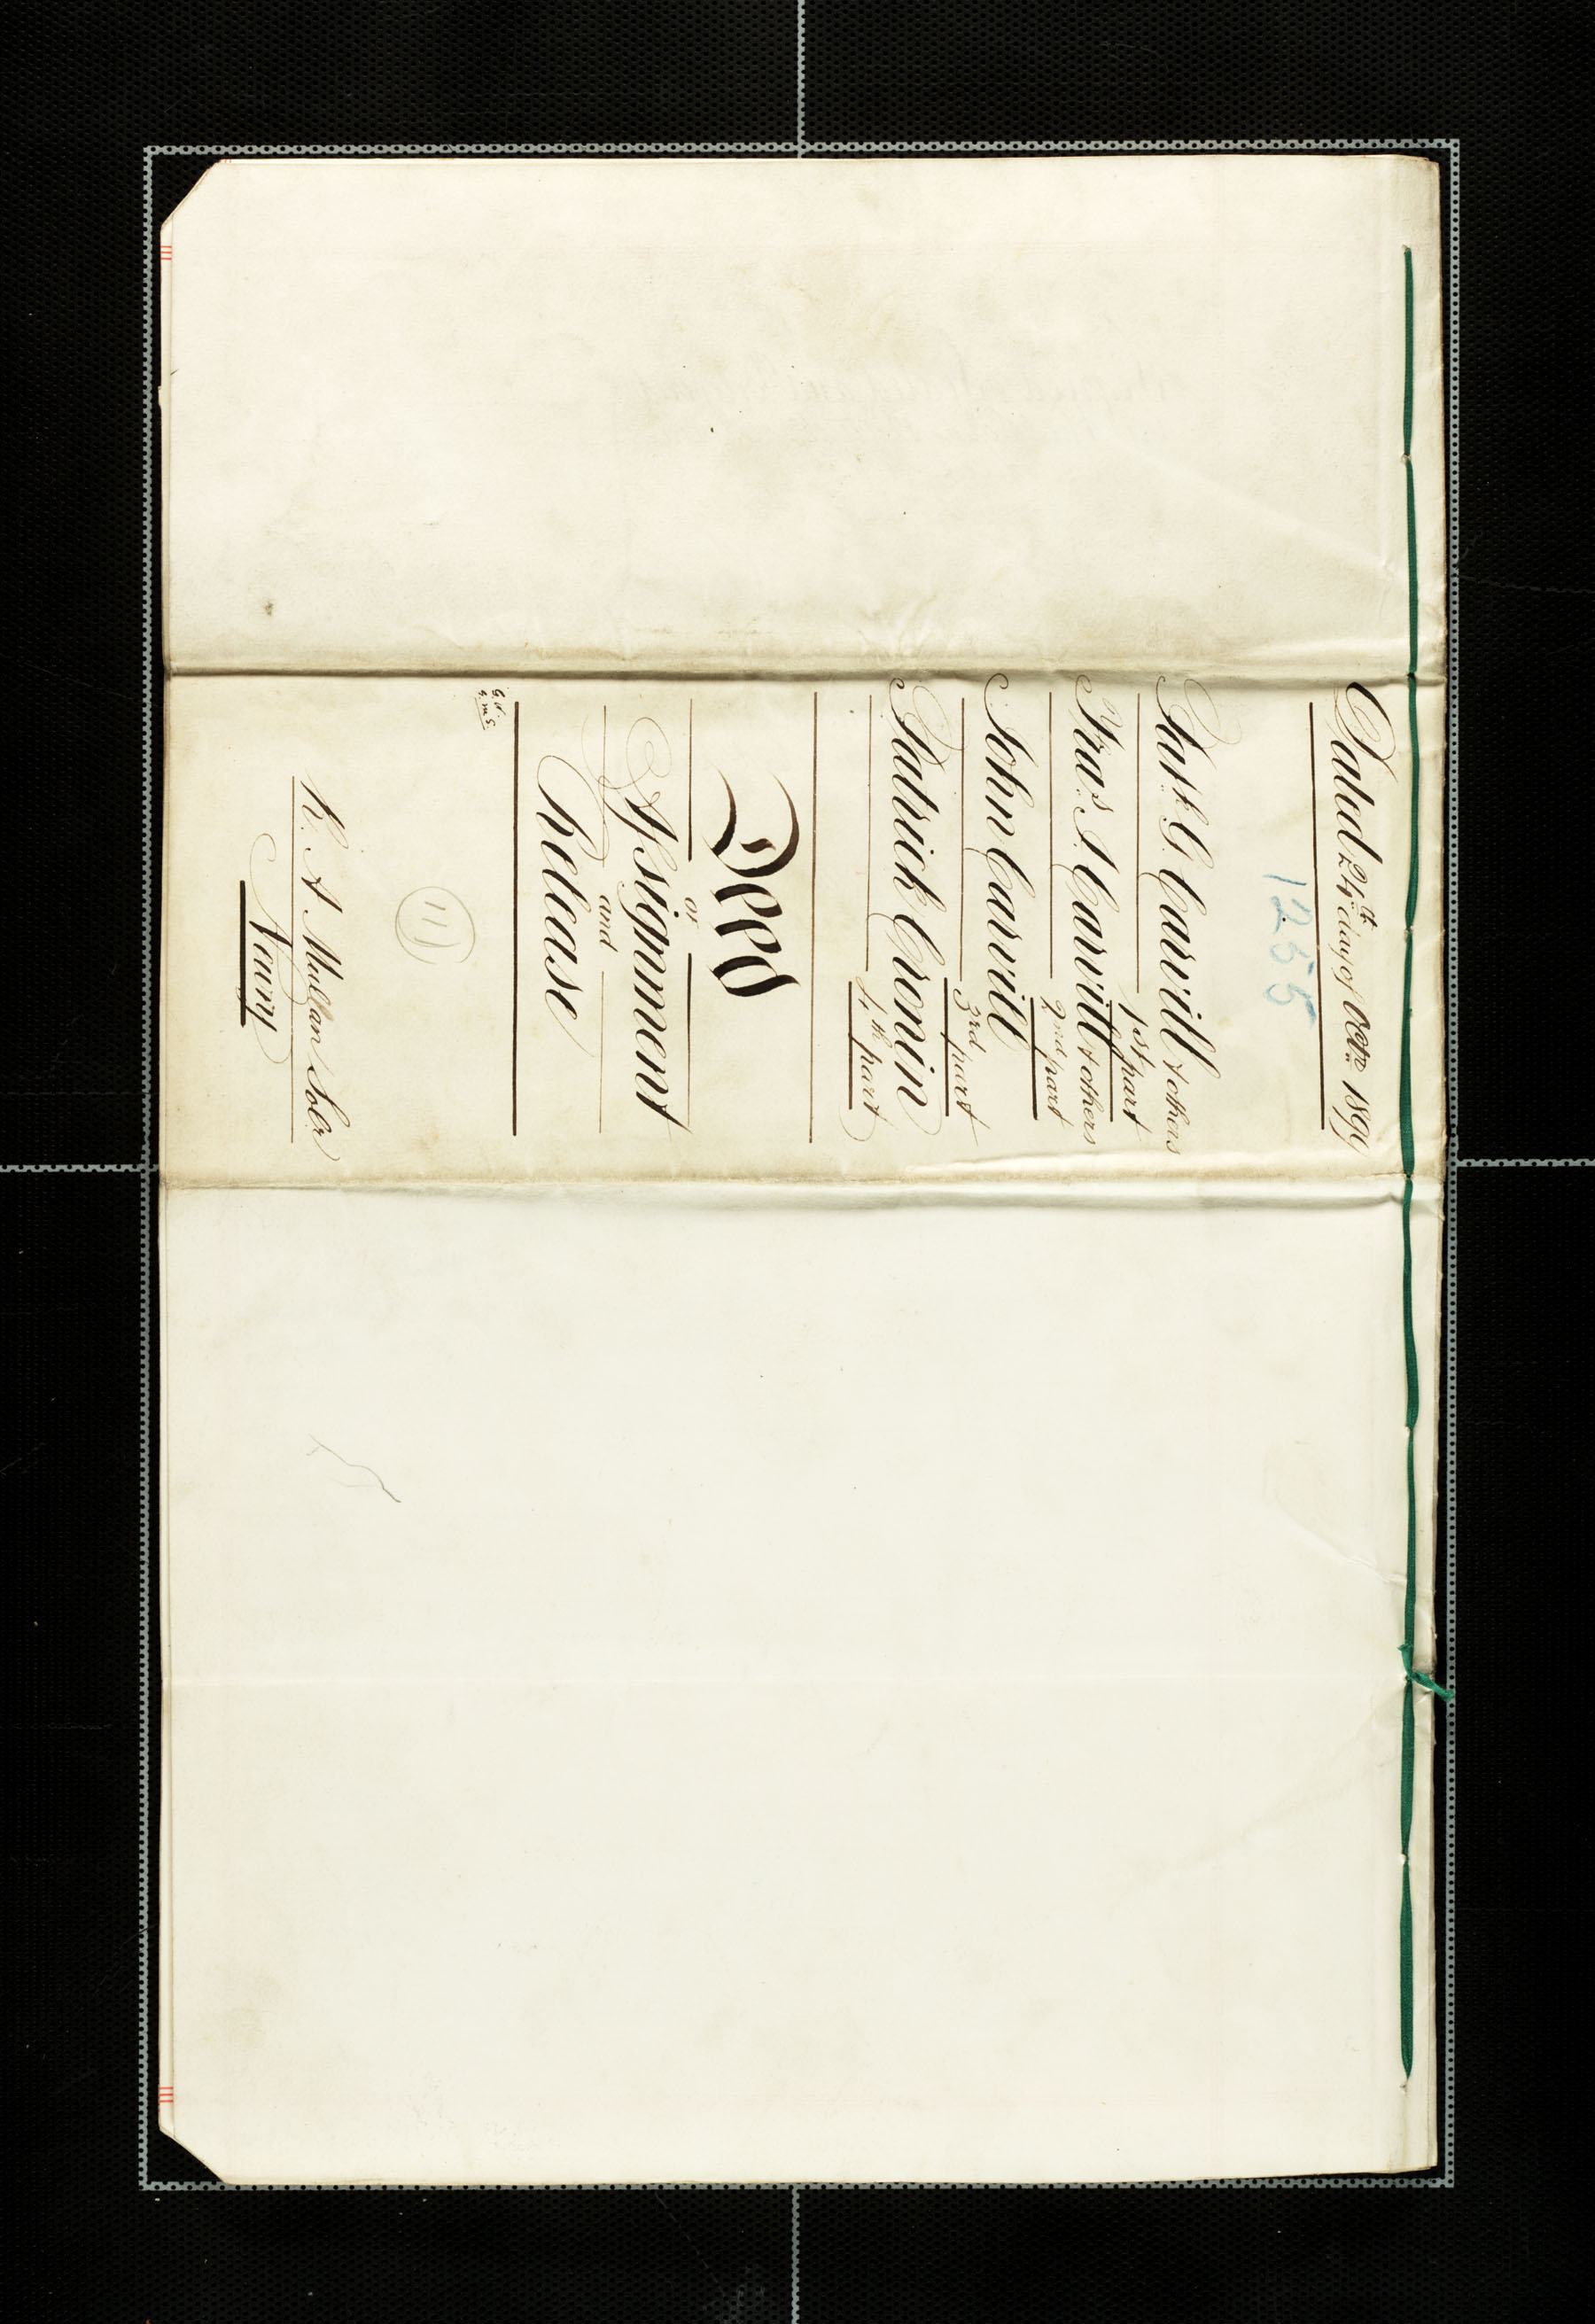 Dated 24th day of Octr. 1899
1255
Patk. G. Carvill & others
1st part
Fras. J. Carvill & others
2nd part
John Carvill
3rd part
Patrick Cronin
4th part
Deed
or
Assignment
and
Release
11
R. A. Mullan Solr.
Newry